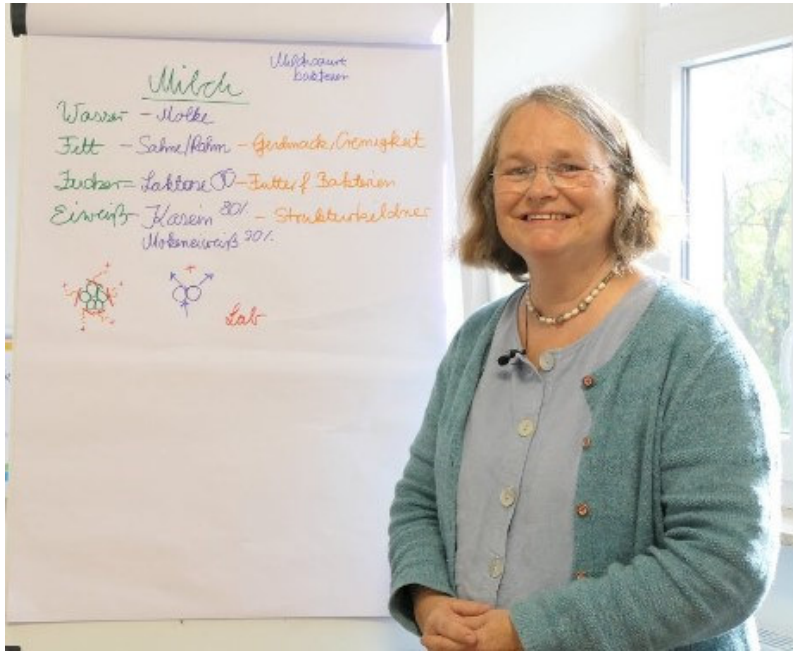 Milch
Milchsäure
bakterien
Wasser - Molke
Fett - Sahne/Rahm - Geschmack, Cremigkeit
Zucker = Laktose - Futter f. Bakterien
Eiweiß - Kasein 80% - Strukturbildner
Molkeneiweiß 20%
Lab